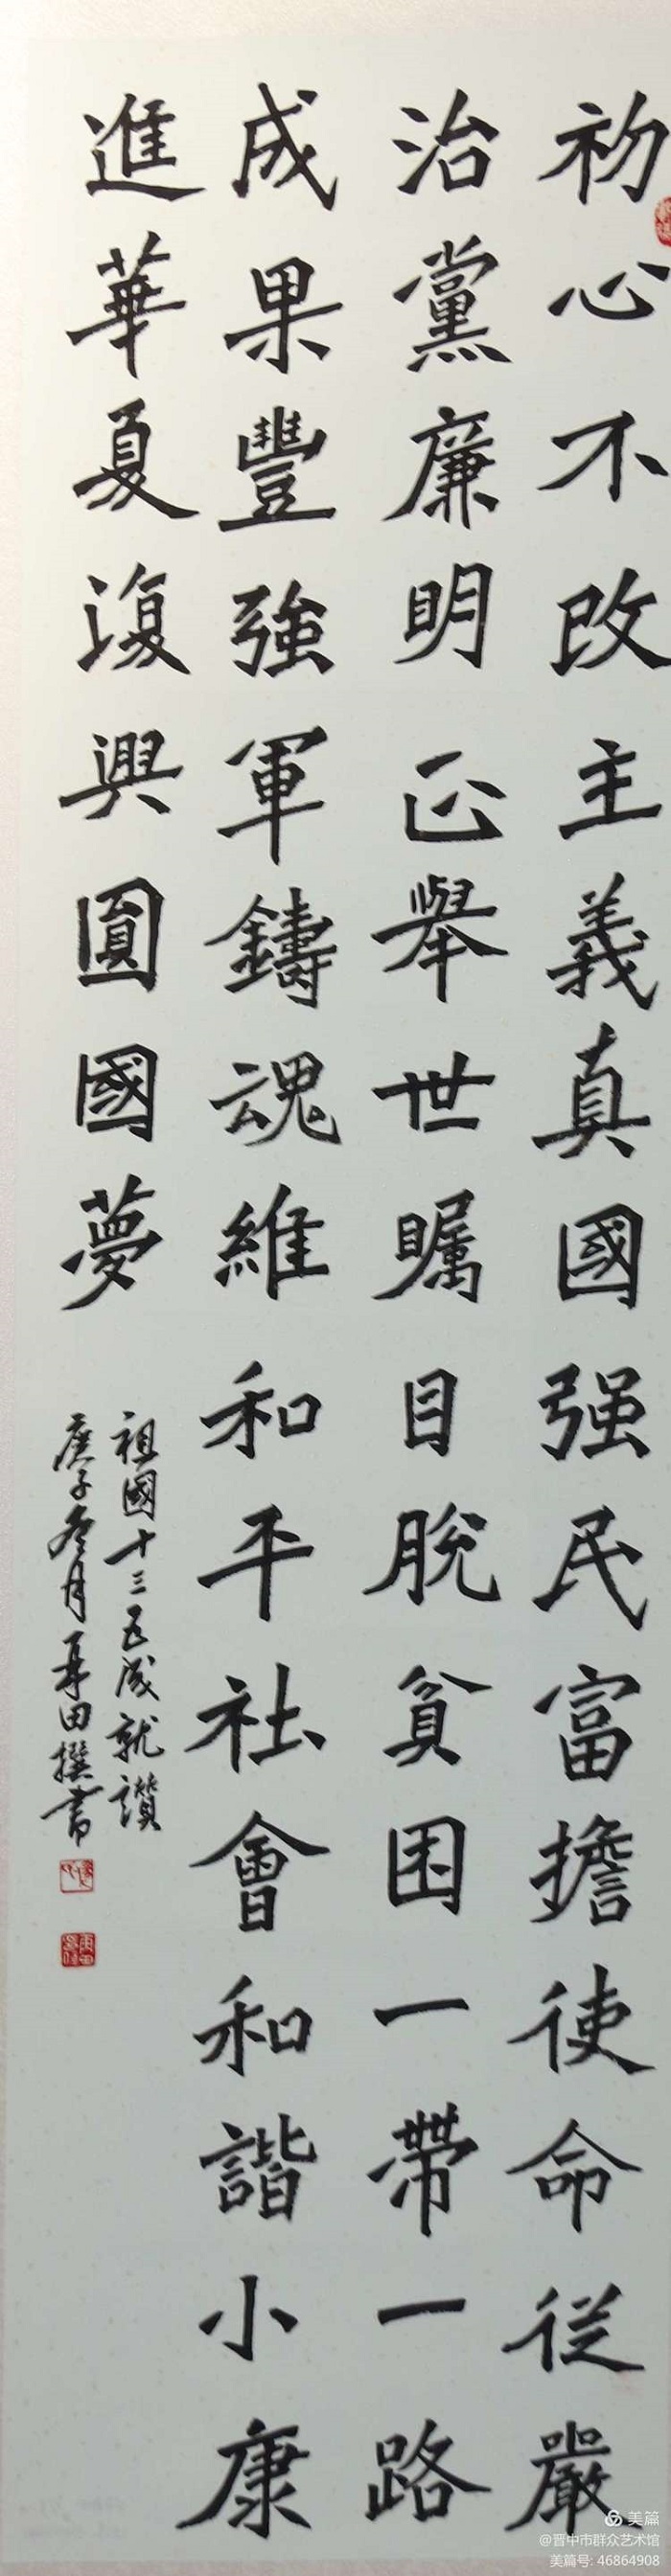 初心不改主義真國强民富擔使命從嚴
治黨廉明正舉世瞩目脫貧困一帶一路
成果豐強軍鑄魂維和平社會和諧小康
進華夏復興圓國夢
祖國十三五成就讃
庚子冬月 田撰書
美篇
@晋中市群众艺术馆
美篇号: 46864908